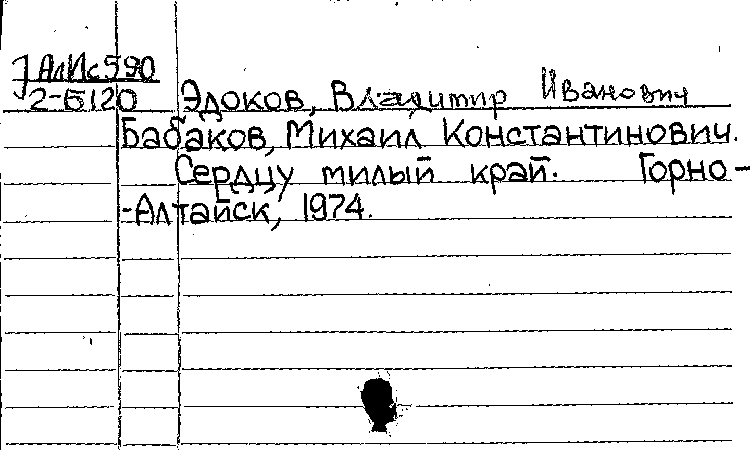 АлИс590
2-Б120 Эдоков, Владимир Иванович
Бабаков, Михаил Константинович.
Сердцу милый край. Горно-
-Алтайск, 1974.